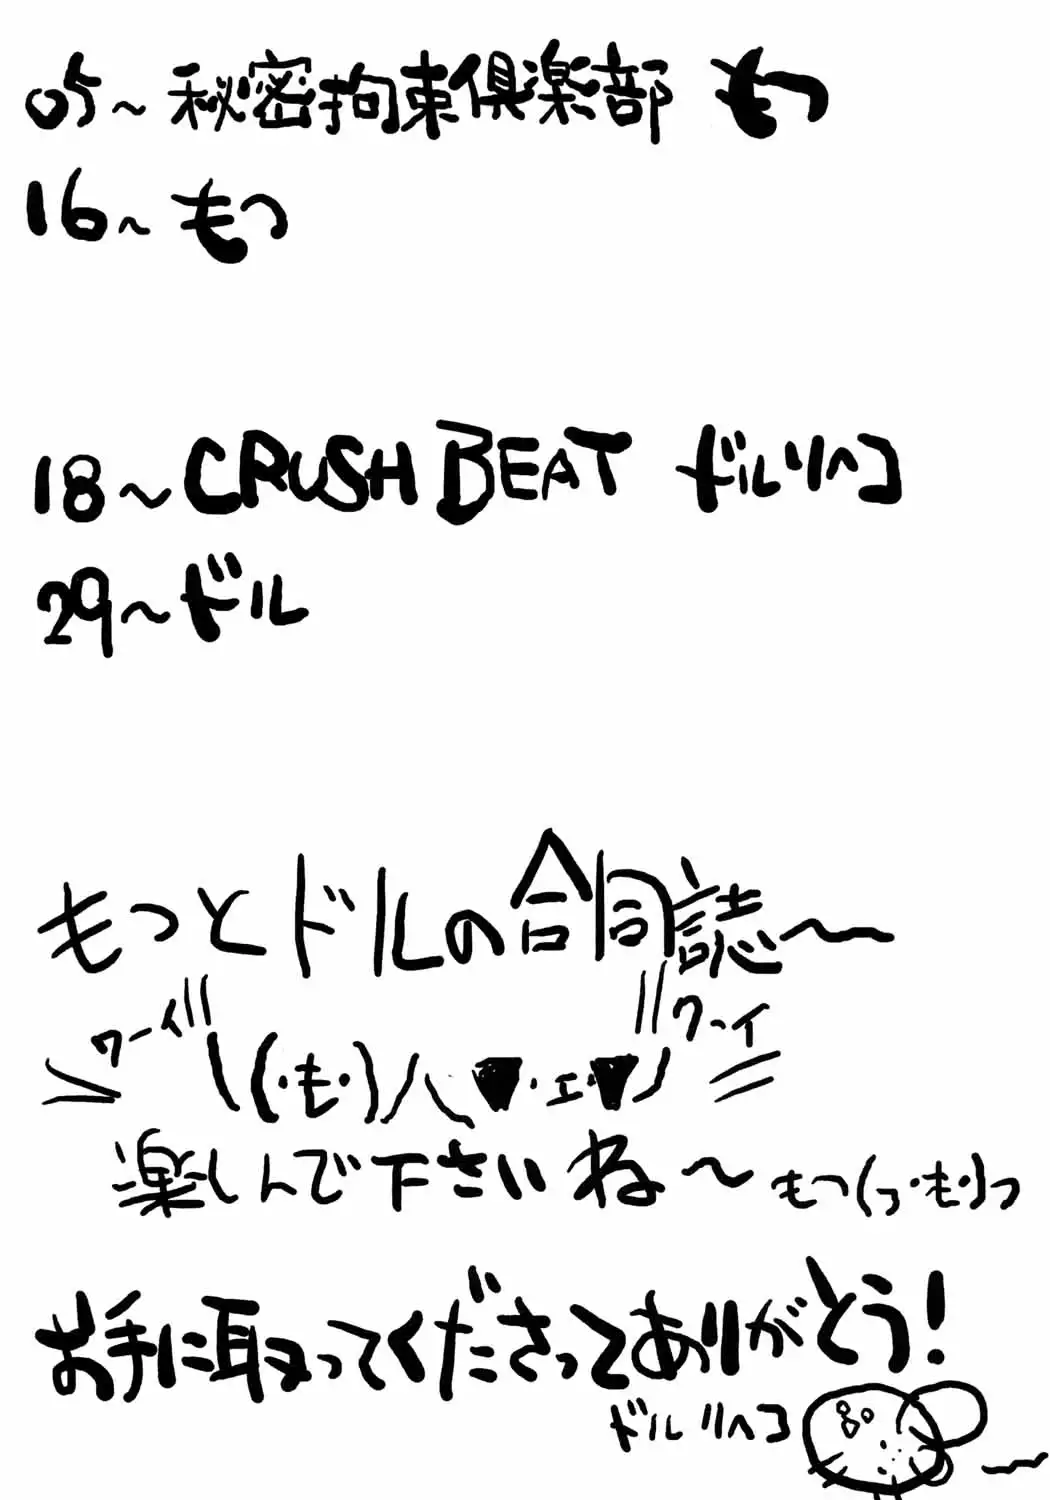 05～秘密拘束倶楽部 もつ
16～もつ
18～CRUSH BEAT ドルリヘコ
29～ドル
もつとドルの合同誌～
ワーイ ワーイ
\(・も・)人▼・ェ・▼ノ
楽しんで下さいね～ もつ(っ・も・)っ
お手に取ってくださってありがとう!
ドルリヘコ